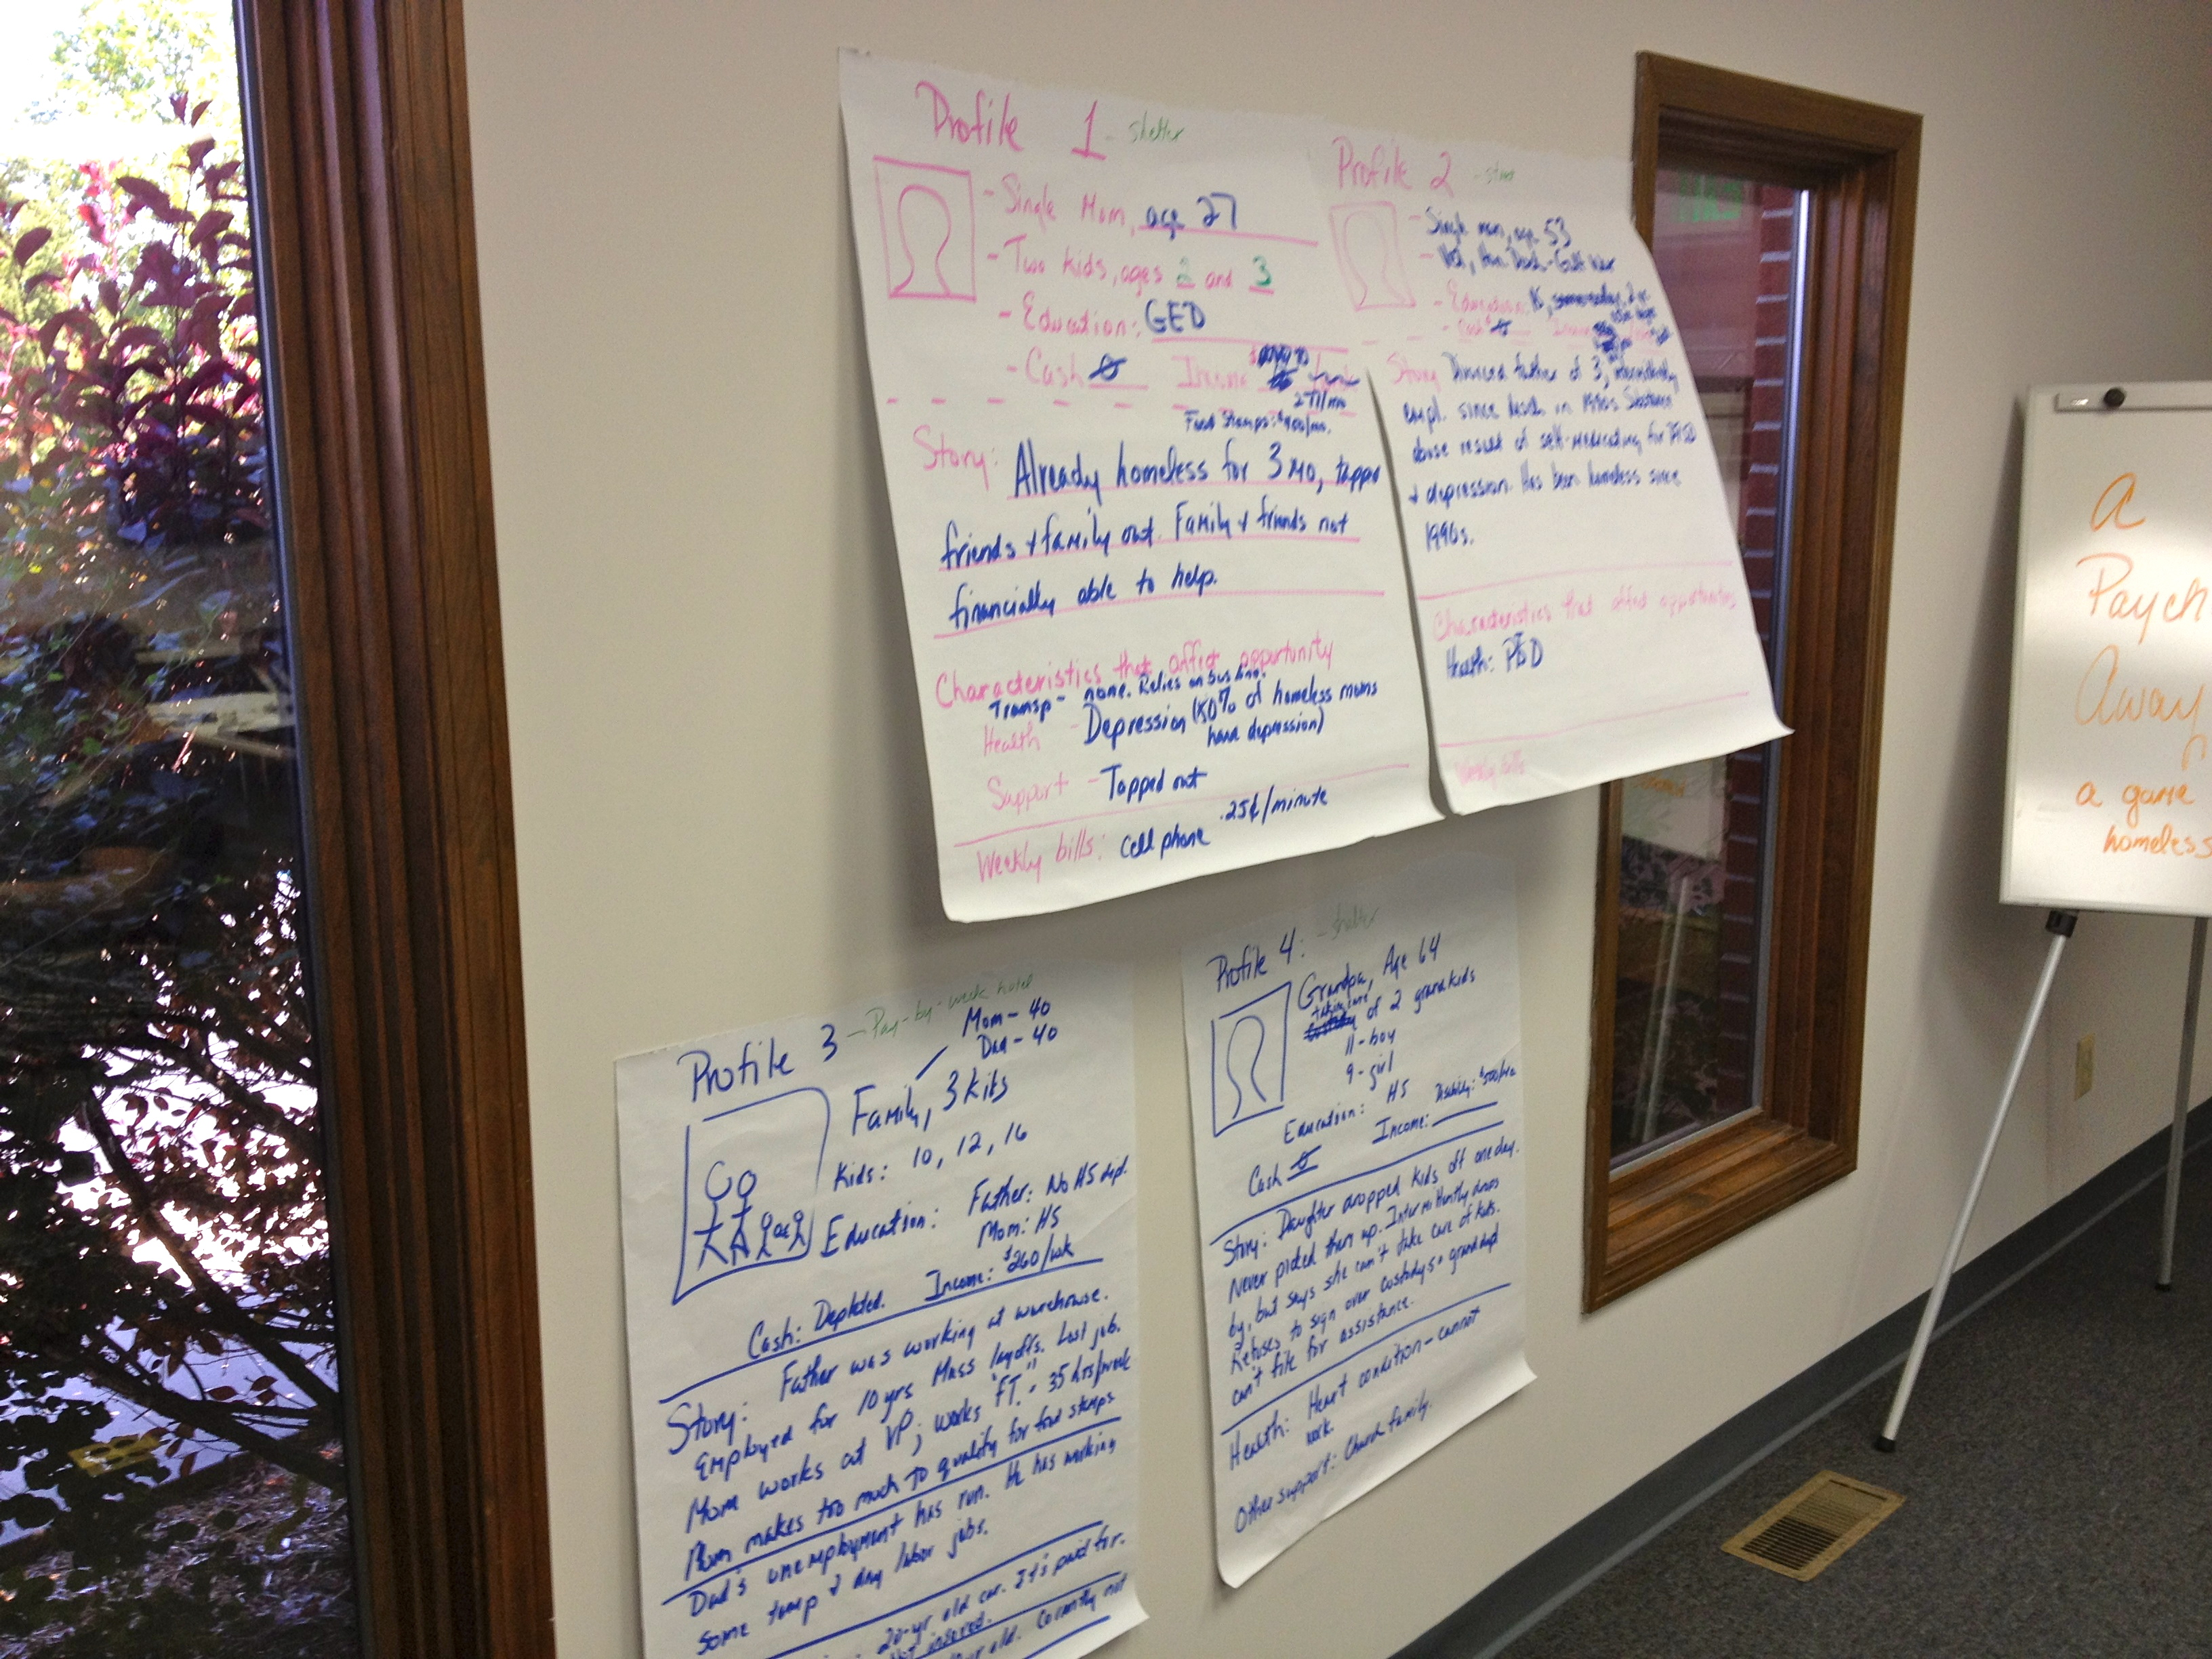 Profile 1 - shelter
- Single Mom, age 27
- Two kids, ages 2 and 3
- Education: GED
- Cash Income
277/mo
Food Stamps: $400/mo.
Story: Already homeless for 3 mo, tapped
friends & family out. Family & friends not
financially able to help.
Characteristics that affect opportunity
Transp - none. Relies on bus line.
Health - Depression (50% of homeless moms
have depression)
Support - Tapped out
Weekly bills: cell phone .25¢/minute
Profile 2 - street
- Single man, age 53
- Vet, Hon. Disch - Gulf War
- Education: HS,
- Cash Income
Story Divorced father of 3, intermittently
empl. since disch in 1990s Substance
abuse result of self-medicating for PTSD
& depression. Has been homeless since
1990s.
Characteristics that affect opportunities
Health: PTSD
Weekly bills
Profile 3 - Pay-by-week hotel
Mom - 40
Dad - 40
Family, 3 kids
Kids: 10, 12, 16
Education: Father: No HS dipl.
Mom: HS
Cash: Depleted. Income: $260/wk
Story: Father was working at warehouse.
Employed for 10 yrs Mass layoffs. Lost job.
Mom works at VP; works "FT." - 35 hrs/week
Mom makes too much to qualify for food stamps
Dad's unemployment has run. He has working
some temp & day labor jobs.
20-yr old car. It's paid for.
Not insured.
old. Currently not
Profile 4: - shelter
Grandpa, Age 64
taking care
of 2 grandkids
11 - boy
9 - girl
Education: HS
Cash Income: Disability: $500/mo
Story: Daughter dropped kids off one day.
Never picked them up. Intermittently drops
by, but says she can't take care of kids.
Refuses to sign over custody so granddad
can't file for assistance.
Health: Heart condition - cannot
work.
Other support: Church family.
A
Paych
Away
a game
homeless